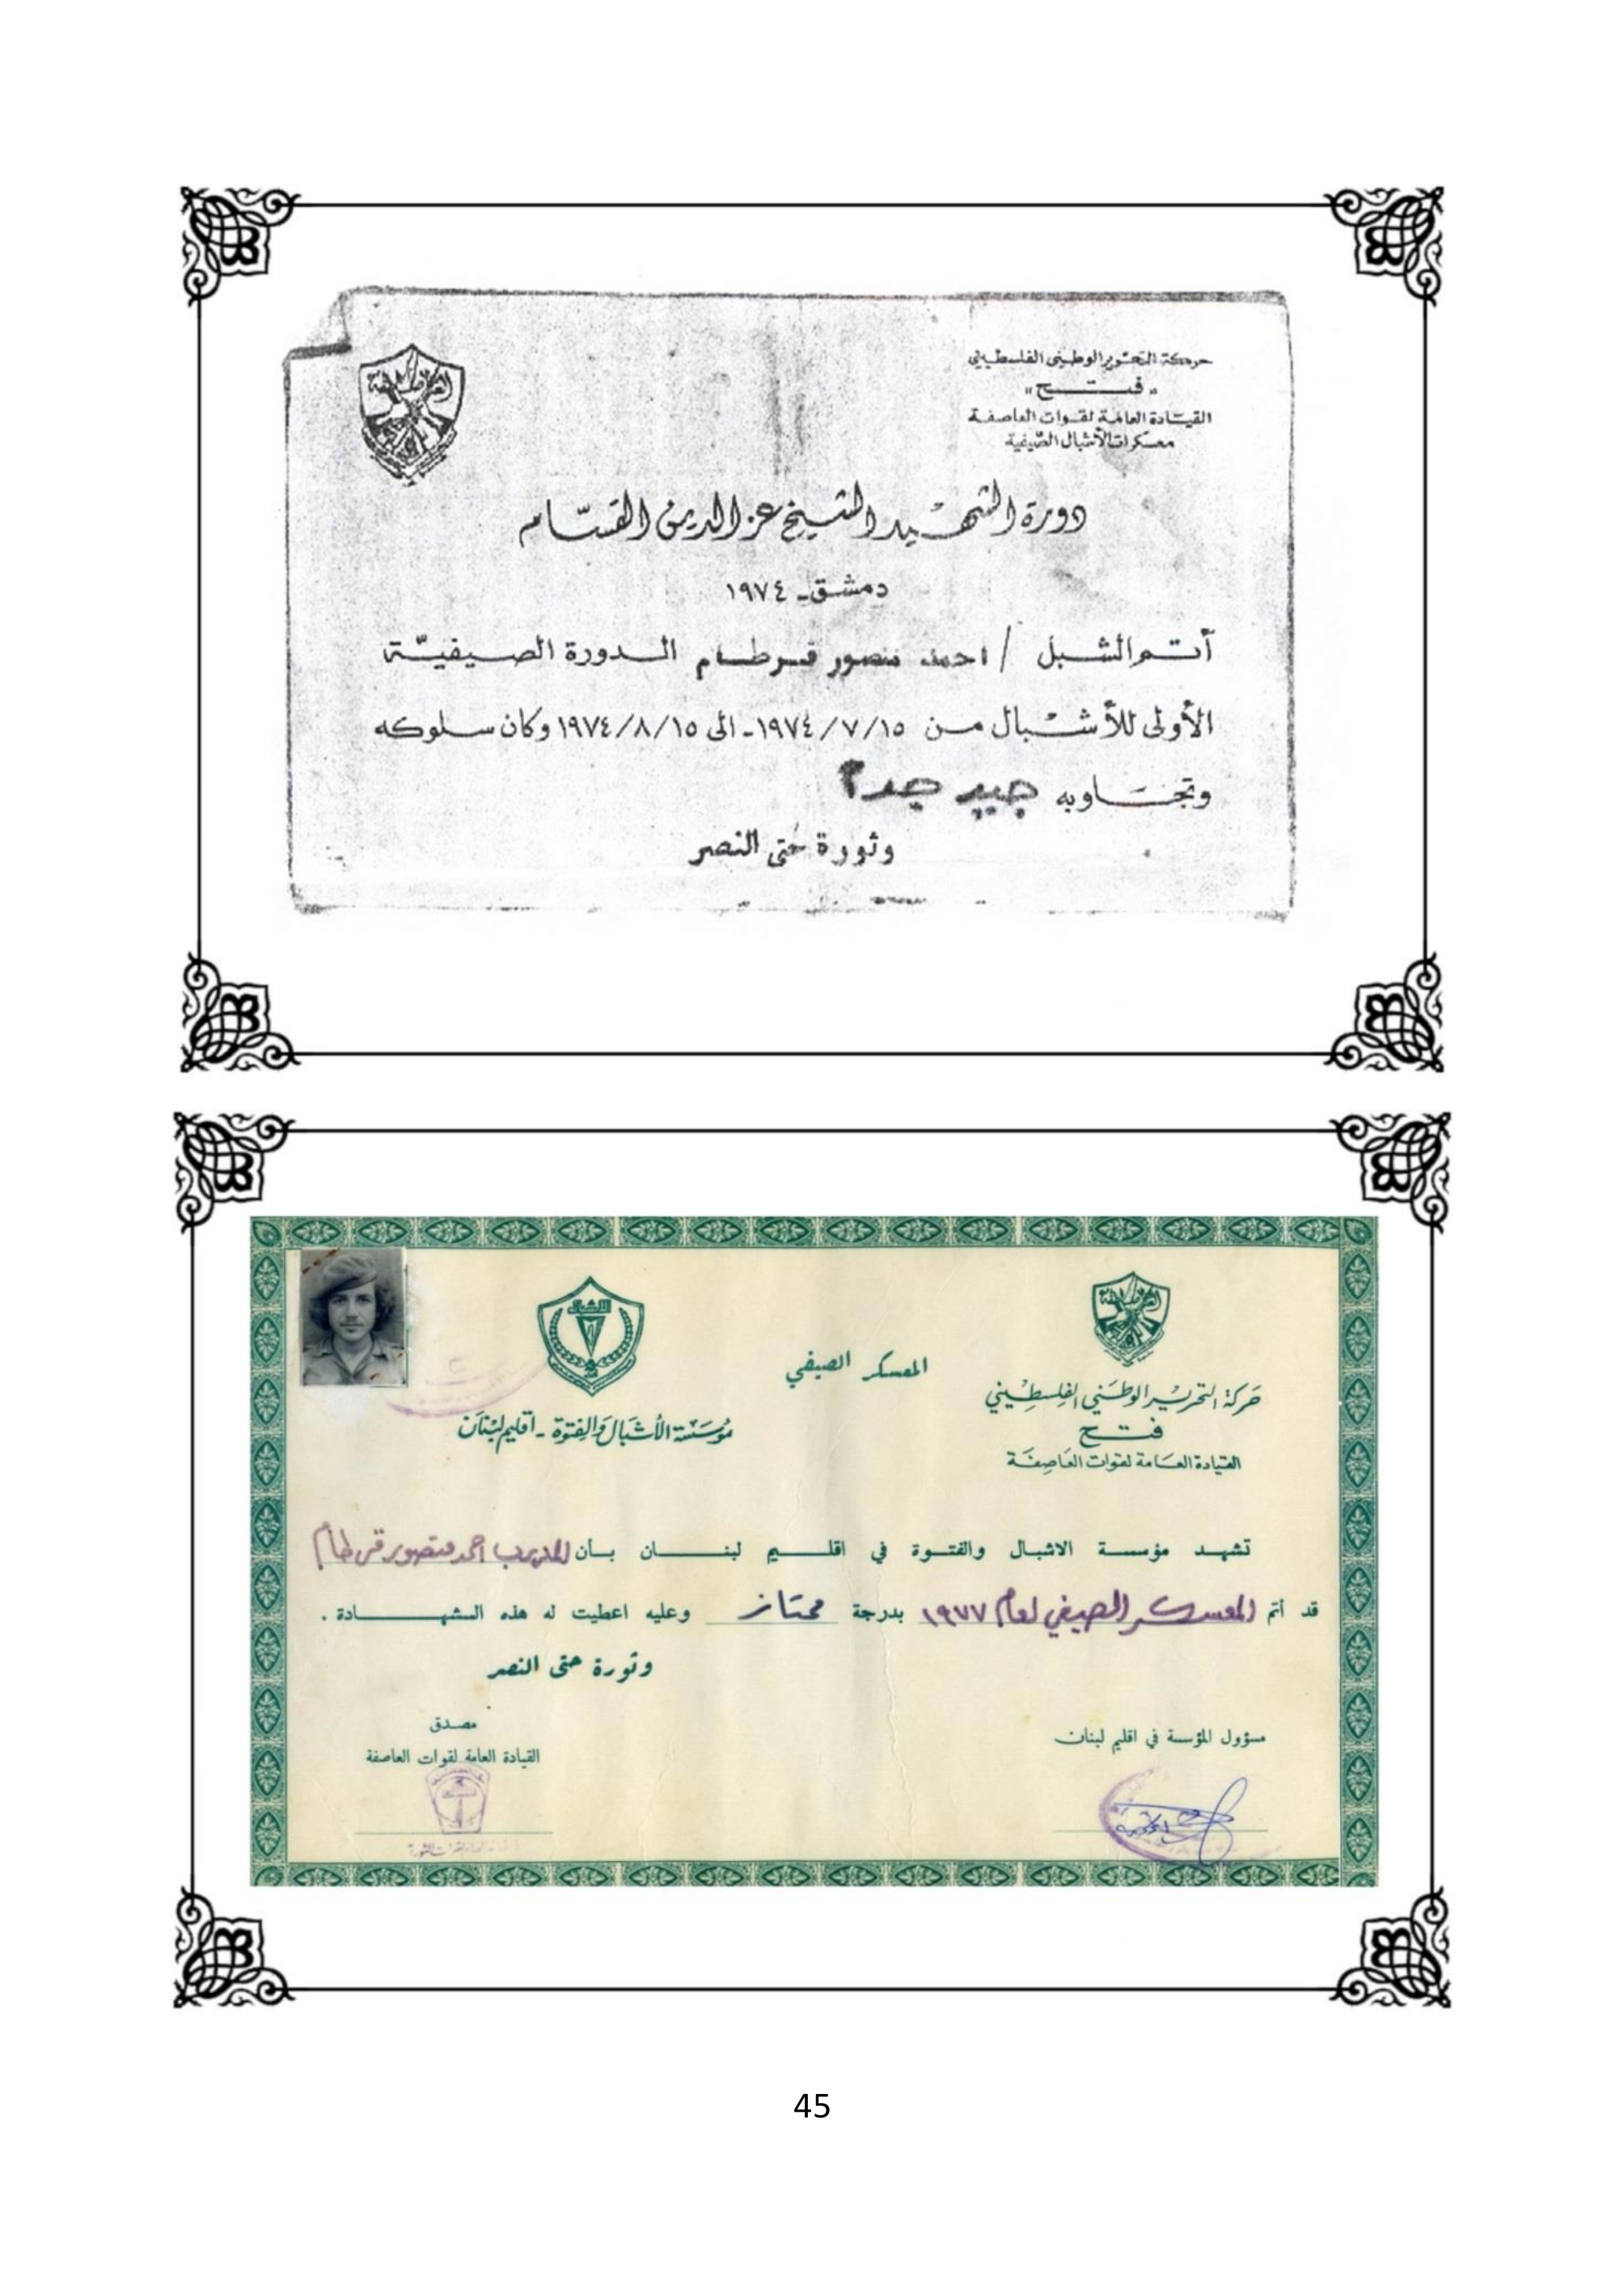 حركة التحرير الوطني الفلسطيني
"فتح"
القيادة العامة لقوات العاصفة
معسكرات الأشبال الصيفية
العاصفة
دورة الشهيد الشيخ عز الدين القسّام
دمشق - ١٩٧٤
أتم الشبل / احمد منصور قرطام الدورة الصيفيّة
الأولى للأشبال من ١٩٧٤/٧/١٥ - الى ١٩٧٤/٨/١٥ وكان سلوكه
وتجاوبه جيد جدا
وثورة حتى النصر
العاصفة
حركة التحرير الوطني الفلسطيني
فتح
القيادة العامة لقوات العاصفة
المعسكر الصيفي
الأشبال
مؤسسة الأشبال والفتوة - اقليم لبنان
تشهد مؤسسة الاشبال والفتوة في اقليم لبنان بأن المدرب احمد منصور قرطام
قد أتم المعسكر الصيفي لعام ١٩٧٧ بدرجة ممتاز وعليه اعطيت له هذه الشهادة .
وثورة حتى النصر
مسؤول المؤسسة في اقليم لبنان
مصدق
القيادة العامة لقوات العاصفة
45